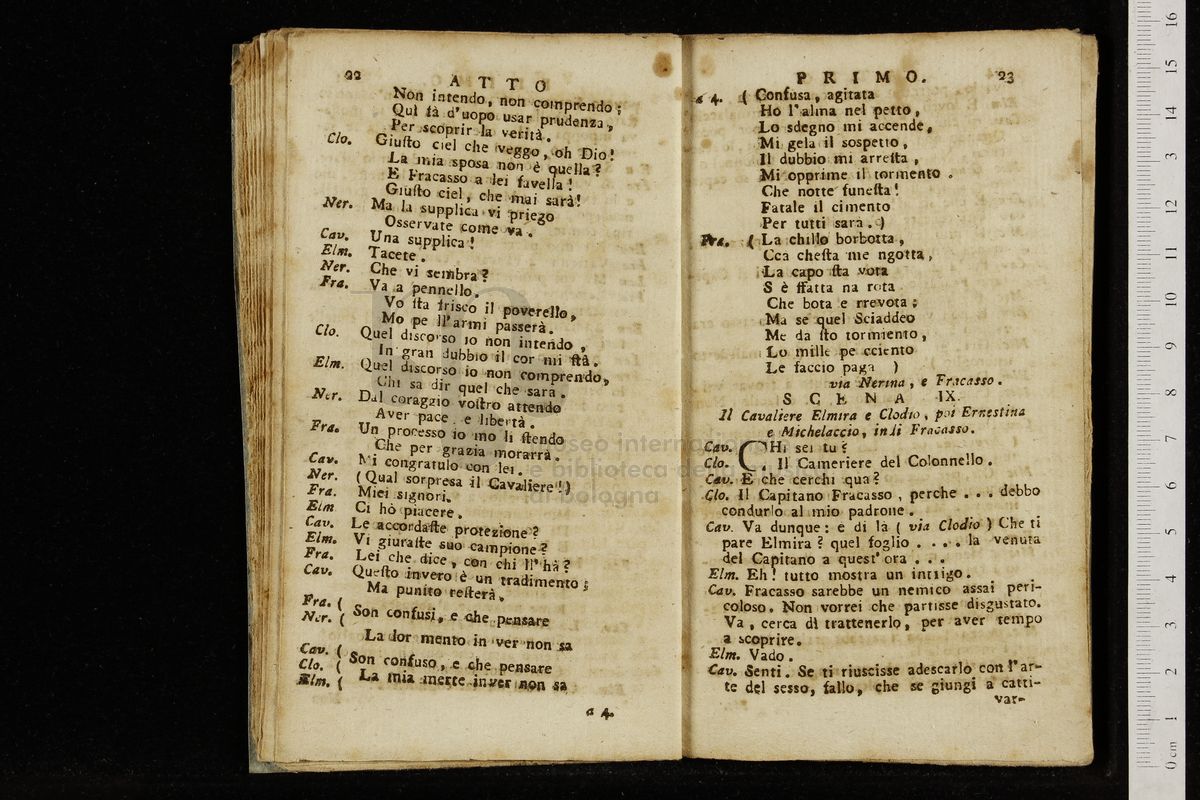 22
ATTO
Non intendo, non comprendo;
Quì fà d'uopo usar prudenza,
Per scoprir la verità.
Clo. Giuſto ciel che veggo, oh Dio!
La mia sposa non è quella?
E Fracasso a lei favella!
Giuſto ciel, che mai sarà!
Ner. Ma la supplica vi priego
Osservate come va.
Cav. Una supplica!
Elm. Tacete.
Ner. Che vi sembra?
Fra. Va a pennello.
Vo ſta frisco il poverello,
Mo pe ll'armi passerà.
Clo. Quel discorso io non intendo,
In gran dubbio il cor mi ſtà.
Elm. Quel discorso io non comprendo,
Chi sa dir quel che sara.
Ner. Dal coraggio voſtro attendo
Aver pace, e libertà.
Fra. Un processo io mo li ſtendo
Che per grazia morarrà.
Cav. Mi congratulo con lei.
Ner. (Qual sorpresa il Cavaliere!)
Fra. Miei signori.
Elm Ci hò piacere.
Cav. Le accordaſte protezione?
Elm. Vi giuraſte suo campione?
Fra. Lei che dice, con chi ll'hà?
Cav. Queſto invero è un tradimento;
Ma punito reſterà.
Fra. (
Ner. ( Son confusi, e che pensare
La lor mento in ver non sa
Cav. (
Clo. ( Son confuso, e che pensare
Elm. ( La mia mente in ver non sa
a 4.
PRIMO.
23
a 4. ( Confusa, agitata
Ho l'alma nel petto,
Lo sdegno mi accende,
Mi gela il sospetto,
Il dubbio mi arreſta,
Mi opprime il tormento.
Che notte funeſta!
Fatale il cimento
Per tutti sara.)
Fra. ( La chillo borbotta,
Cca cheſta me ngotta,
La capo ſta vota
S è ffatta na rota
Che bota e rrevota;
Ma se quel Sciaddeo
Me da ſto tormiento,
Lo mille pe cciento
Le faccio paga )
via Nerina, e Fracasso.
SCENA IX.
Il Cavaliere Elmira e Clodio, poi Ernestina
e Michelaccio, indi Fracasso.
Cav. CHi sei tu?
Clo. Il Cameriere del Colonnello.
Cav. E che cerchi qua?
Clo. Il Capitano Fracasso, perche . . . debbo
condurlo al mio padrone.
Cav. Va dunque: e di là ( via Clodio ) Che ti
pare Elmira? quel foglio . . . . la venuta
del Capitano a quest' ora . . .
Elm. Eh! tutto mostra un intrigo.
Cav. Fracasso sarebbe un nemico assai peri-
coloso. Non vorrei che partisse disgustato.
Va, cerca di trattenerlo, per aver tempo
a scoprire.
Elm. Vado.
Cav. Senti. Se ti riuscisse adescarlo con l'ar-
te del sesso, fallo, che se giungi a catti-
var-
museo internazionale
e biblioteca della musica
di bologna
0 cm 1 2 3 4 5 6 7 8 9 10 11 12 13 14 15 16